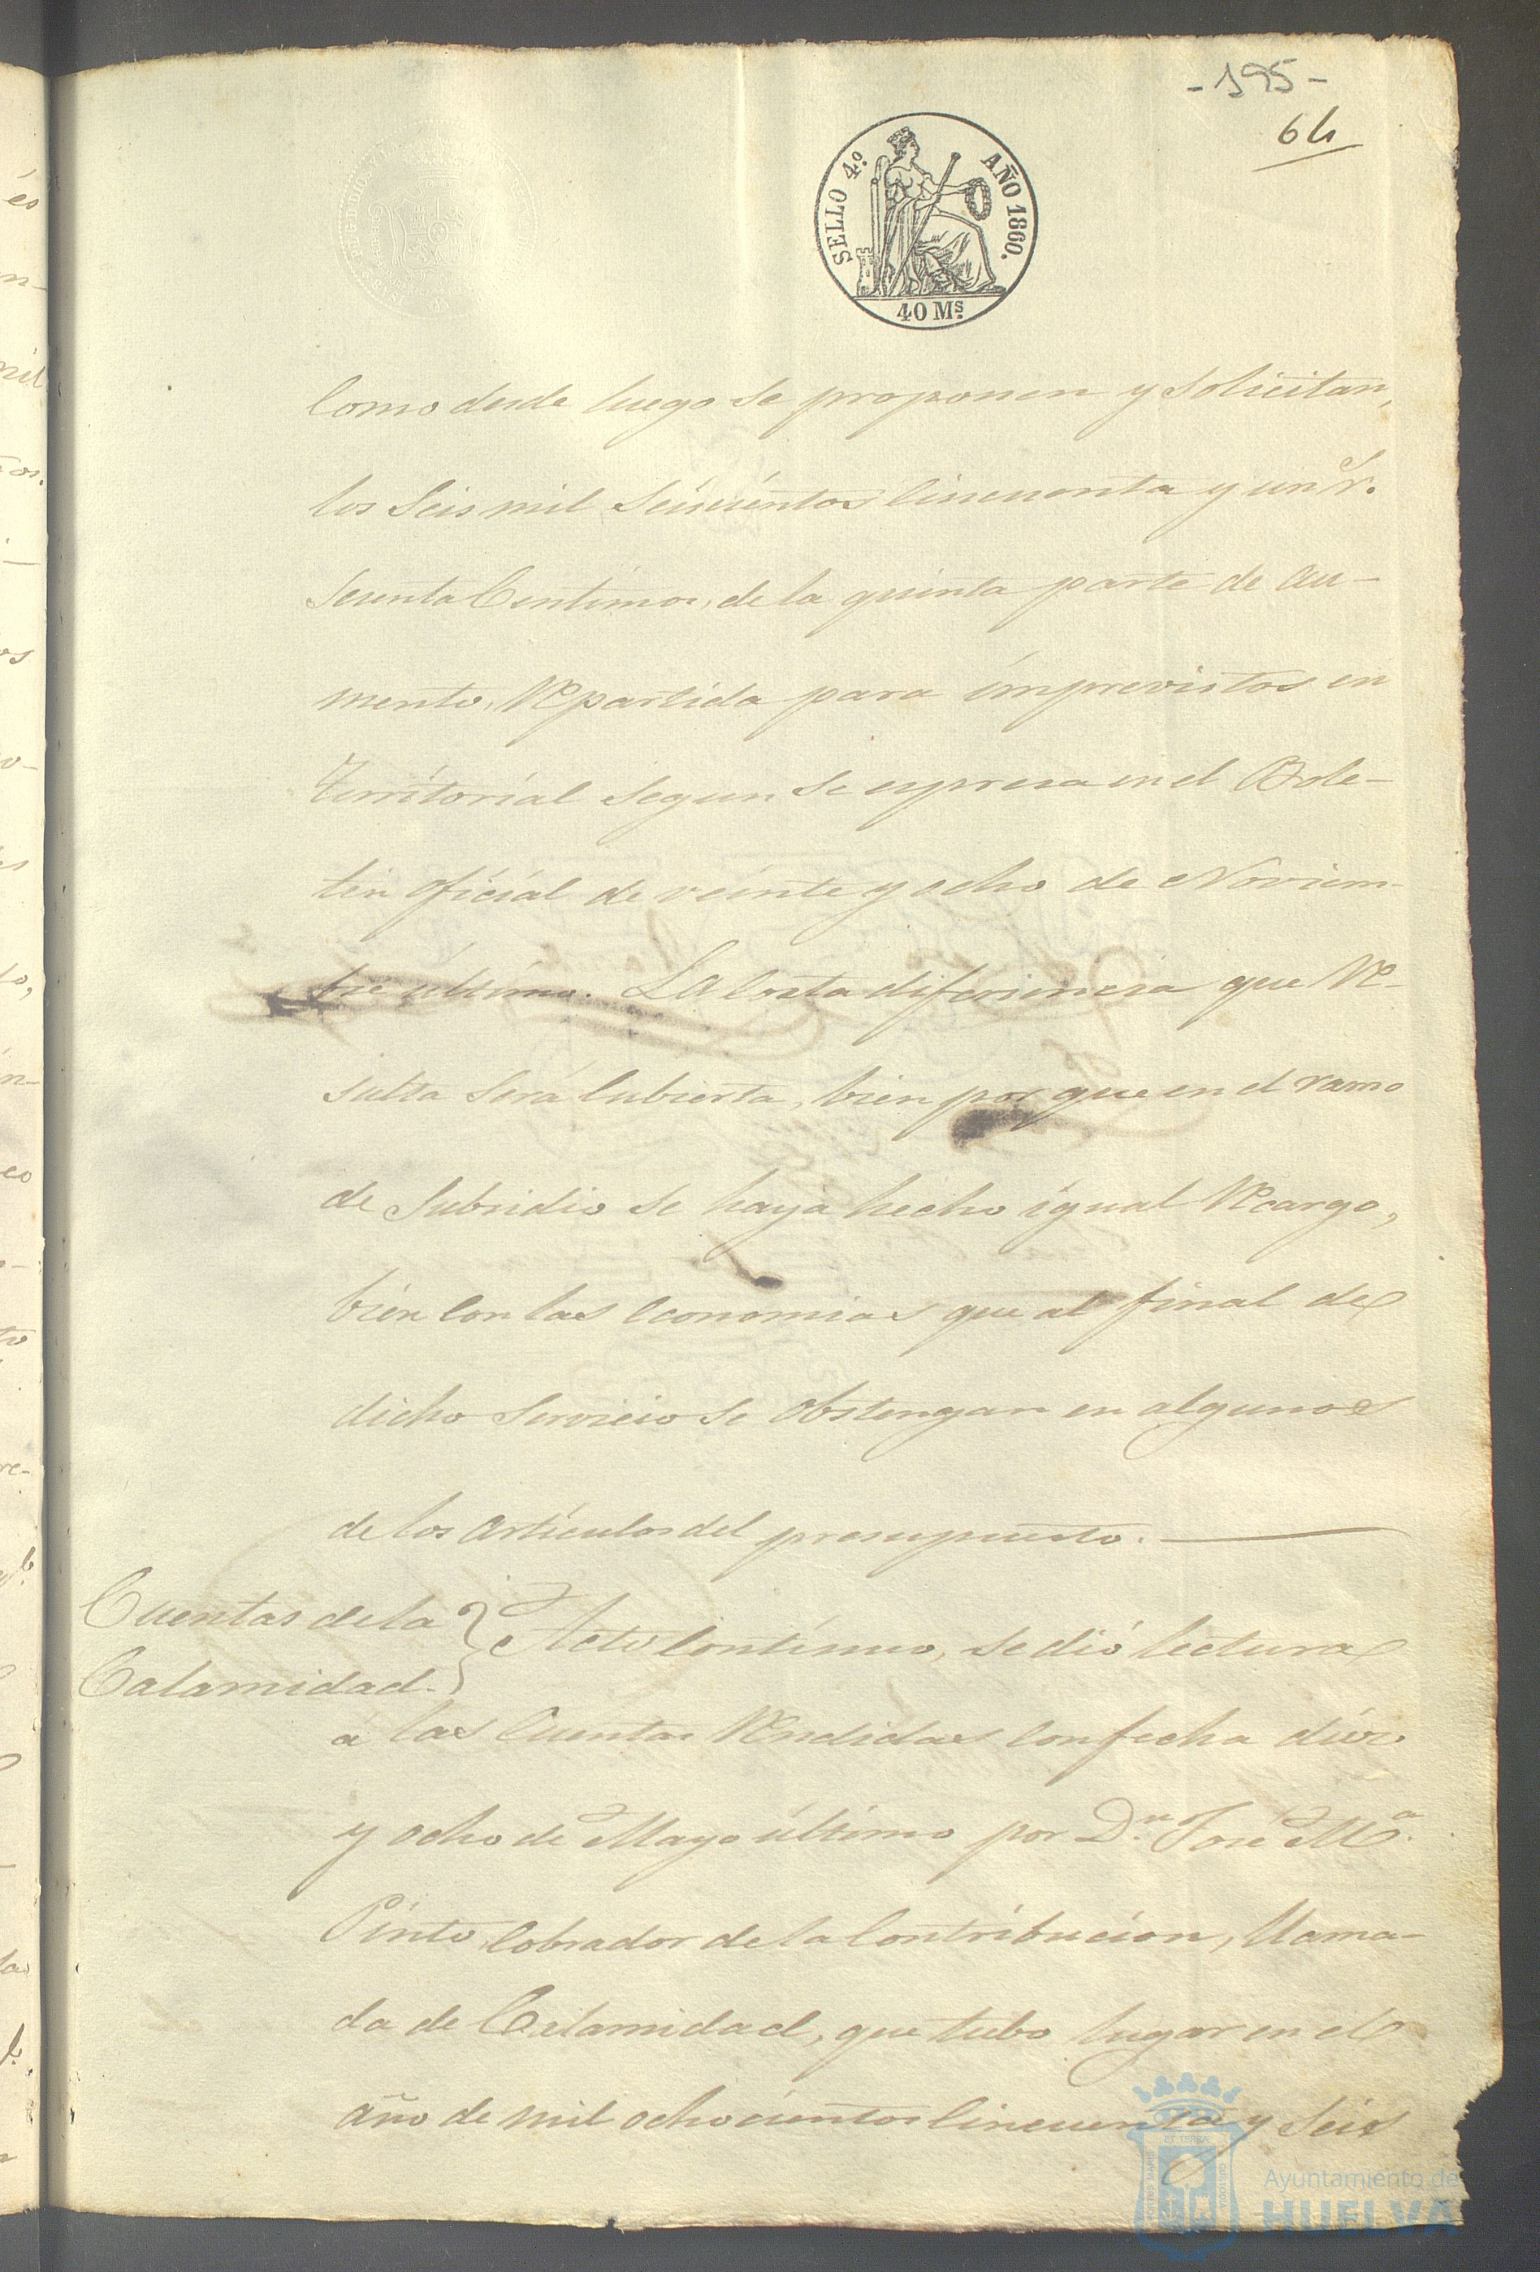 -195-
64
SELLO 4.º AÑO 1860.
40 Ms.
Como desde luego se proponen y solicitan,
los seis mil seiscientos cincuenta y un rs.
sesenta centimos, de la quinta parte de au-
mento, repartida para imprevistos en
territorial segun se espresa en el Bole-
tin oficial de veinte y ocho de Noviem-
bre ultimo. La corta diferiencia que re-
sulta será cubierta, bien por que en el ramo
de subsidio se haya hecho igual recargo,
bien con las economias que al final de
dicho servicio se obstengan en algunos
de los articulos del presupuesto.
Cuentas de la
Calamidad.
Acto continuo, se dió lectura
á las cuentas rendidas con fecha diez
y ocho de Mayo último por Dn. José Ma.
Pinto, cobrador de la contribucion, llama-
da de Calamidad, que tubo lugar en el
año de mil ochocientos cincuenta y seis
Ayuntamiento de
HUELVA